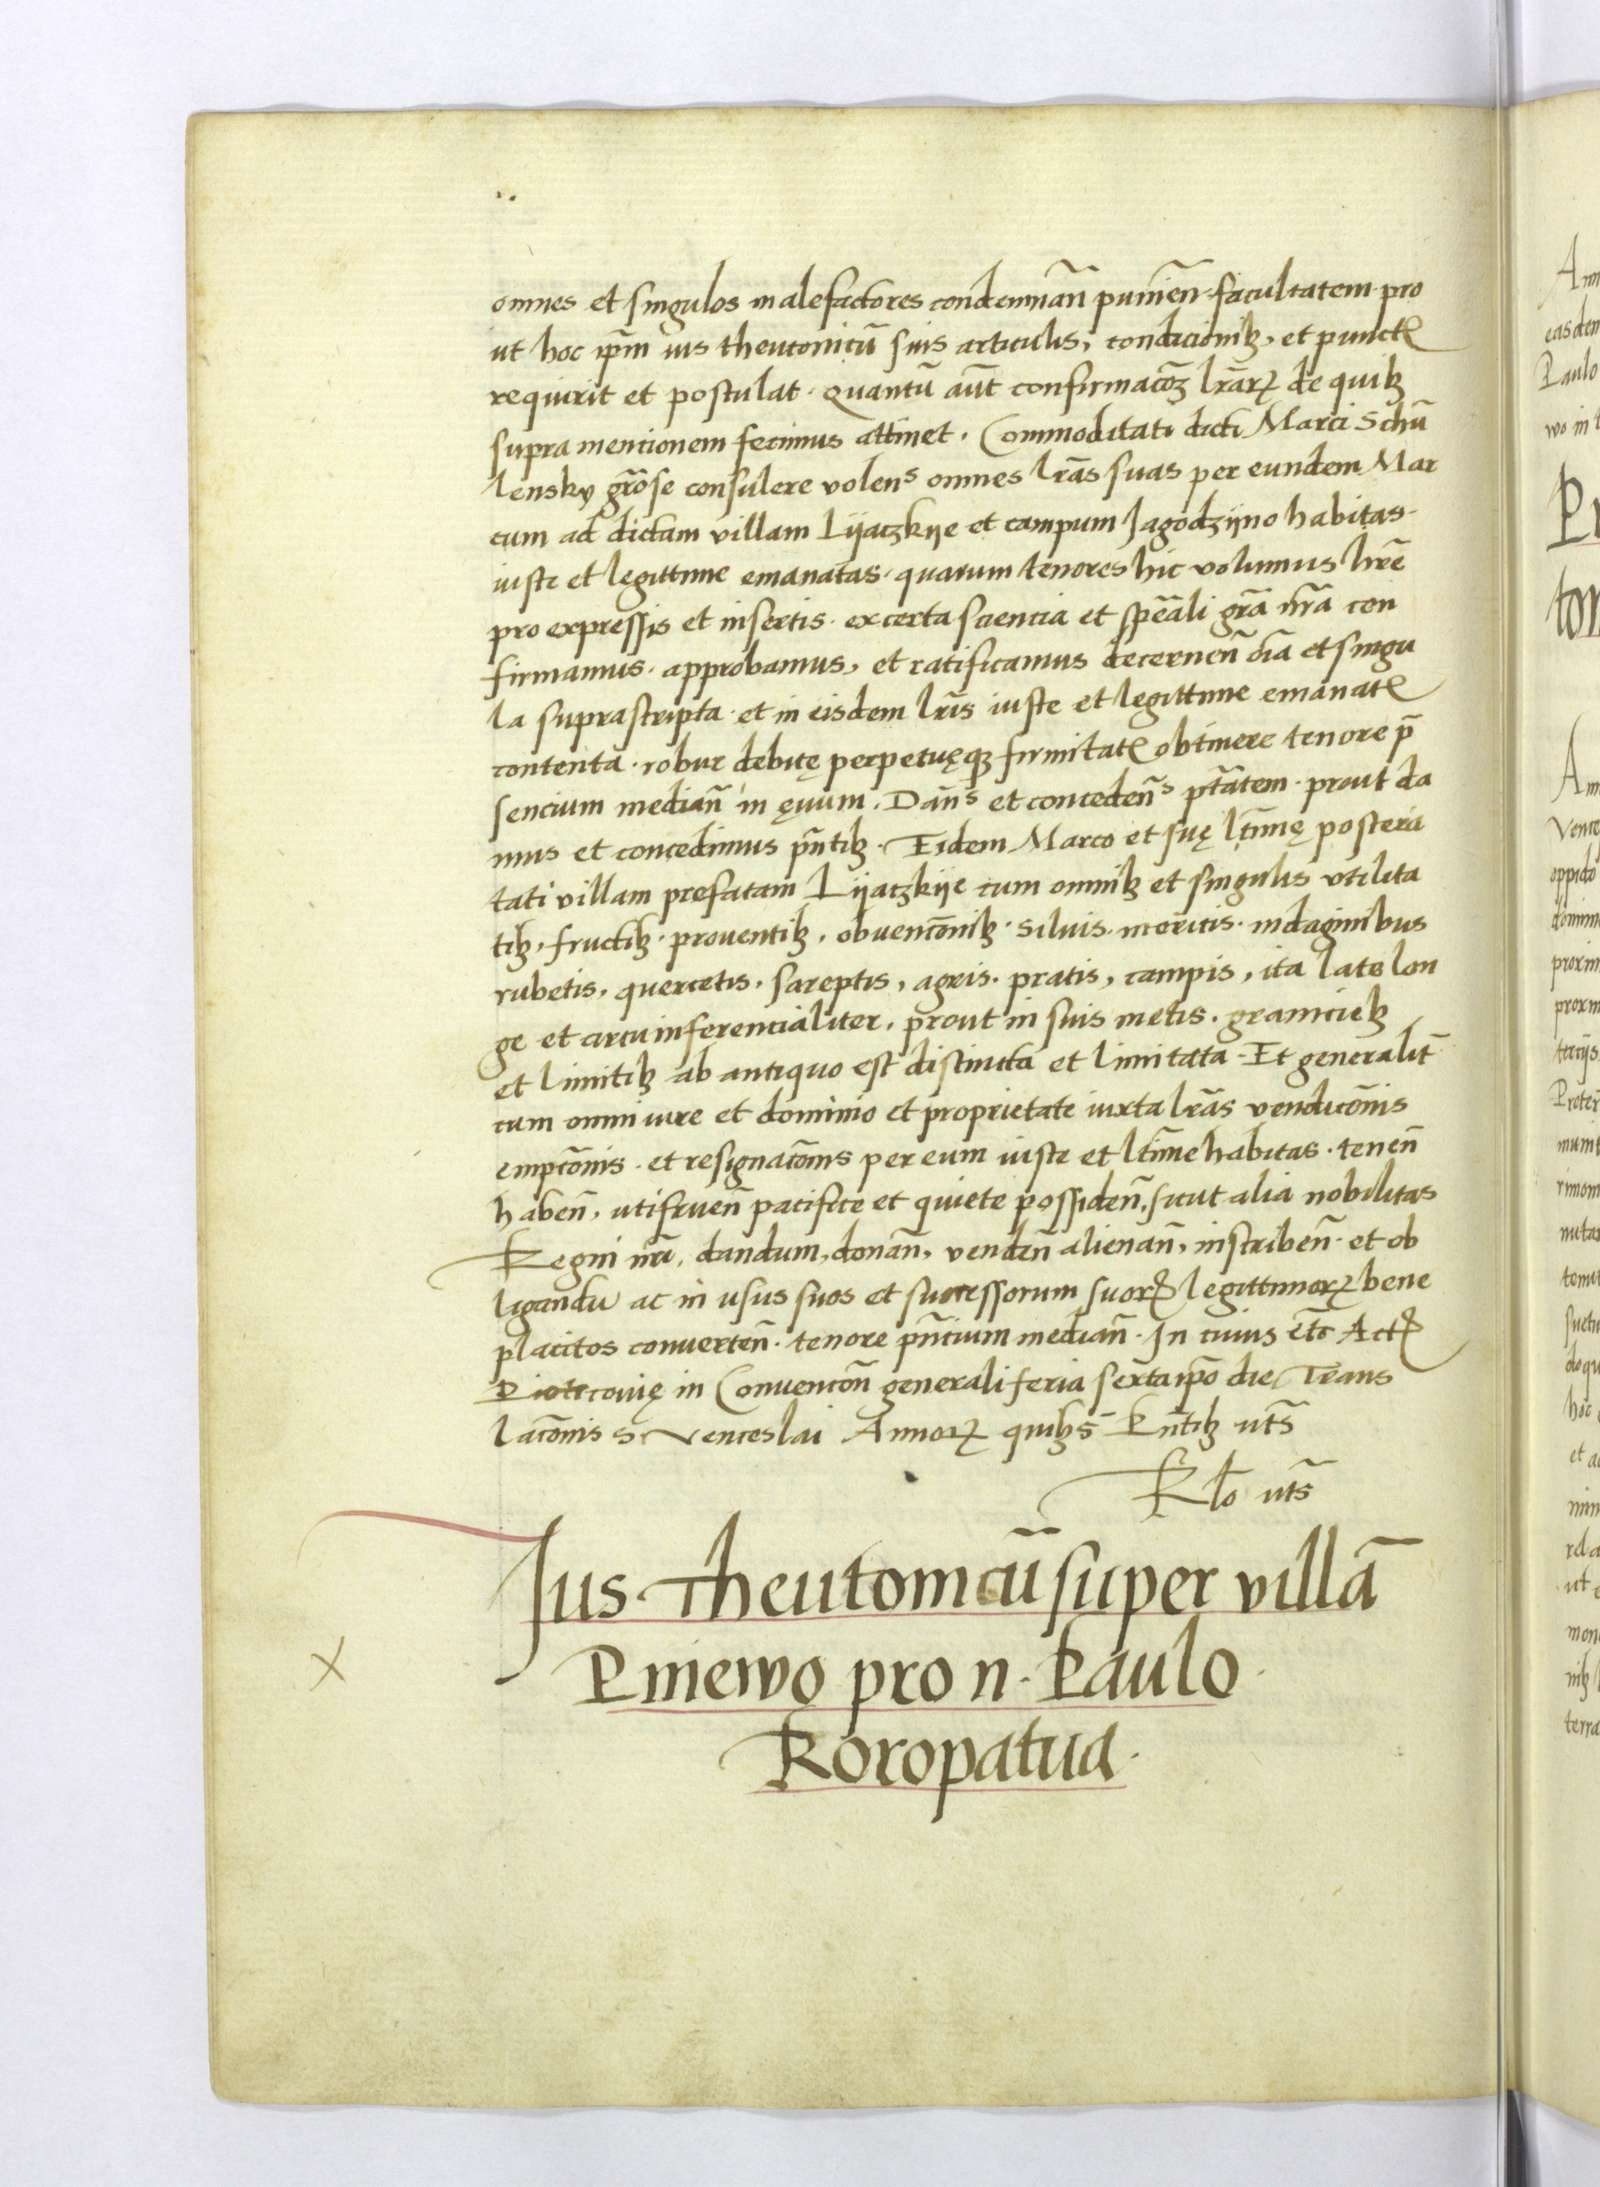 omnes et singulos malefactores condemnañ punień facultatem pro
ut hoc ip̄m ius theutonicū suis articulis, condicionibꝫ, et punctꝭ
requirit et postulat. Quantū aūt confirmacōꝫ lr̄arꝝ de quibꝫ
supra mencionem fecimus attinet. Commoditati dicti Marci Schū
lensky gr̄ose consulere volens omnes lr̄as suas per eundem Mar
cum ad dictam villam Lijaczkije et campum Jagodzijno habitas.
iuste et legittime emanatas. quarum tenores hic volumus hr̄e
pro expressis et insertis. ex certa sciencia et sp̄eali gr̄a nr̄a con
firmamus. approbamus, et ratificamus decerneñ oīa et singu
la suprascripta. et in eisdem lr̄is iuste et legittime emanatꝭ
contenta. robur debitę perpetuęqꝫ firmitatꝭ obtinere tenore p̄
sencium mediañ in ęuum. Dañs et concedeñs p̄tatem. prout da
mus et concedimus pn̄tibꝫ. Eidem Marco et suę ltīmę postera
tati villam prefatam Lijaczkije cum omnibꝫ et singulis vtilita
tibꝫ, fructibꝫ. proventibꝫ, obvencōnibꝫ. silvis. mericis. indaginibus
rubetis, quercetis, sareptis, agris. pratis, campis, ita late lon
ge et circuinferencialiter, prout in suis metis. graniciebꝫ
et limitibꝫ ab antiquo est distincta et limitata. Et generalit̄
cum omni iure et dominio et proprietate iuxta lr̄as vendicōnis
empcōnis. et resignacōnis per eum iuste et ltīme habitas. teneñ
habeñ, utifrueñ pacifice et quiete possideñ, sicut alia nobilitas
Regni nr̄i, dandum, donañ, vendeñ alienañ, inscribeñ. et ob
ligandū ac in usus suos et successorum suorꝝ legittimorꝝ bene
placitos converteñ. tenore pn̄cium mediañ. In cuius etc̄ Actꝭ
Piotrcovię in Convencōn generali feria sexta ip̄o die Trans
lacōnis S. Venceslai Annorꝝ quibꝫ s̄ pn̄tibꝫ ut s̄
Rlō ut s̄
Jus Theutonicū super villā
Pniewo pro n. Paulo
Koropatua.